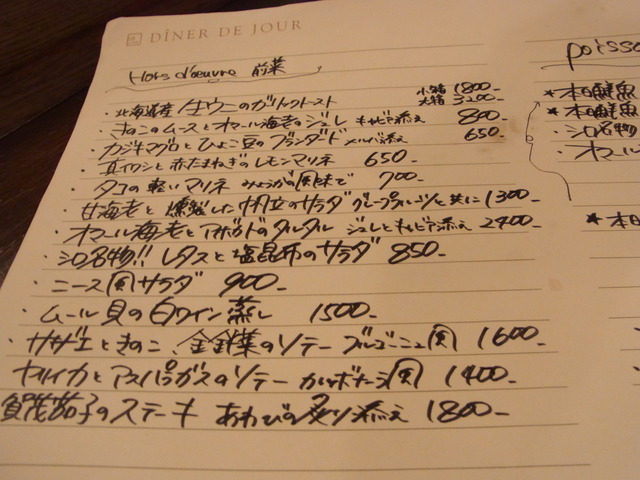 DÎNER DE JOUR
Hors d'oeuvre 前菜
・北海道産 生ウニのガトートースト 小箱 1800-
大箱 3200-
・きのこのムースとオマール海老のジュレ キャビア添え 800-
・カジキマグロとひよこ豆のブランダード メルバ添え 650-
・真イワシと赤たまねぎのレモンマリネ 650-
・タコの軽いマリネ みょうがの風味で 700-
・甘海老と燻製した帆立のサラダ グレープフルーツと共に 1300-
・オマール海老とアボカドのタルタル ジュレとキャビア添え 2400-
・シロ名物!! レタスと塩昆布のサラダ 850-
・ニース風サラダ 900-
・ムール貝の白ワイン蒸し 1500-
・サザエときのこ、のソテー ブルゴーニュ風 1600-
ヤリイカとアスパラガスのソテー カルボナーラ風 1400-
賀茂茄子のステーキ あわびの添え 1800-
poisso
★本日鮮魚
★本日鮮魚
・シロ名物
・オマール
★本日